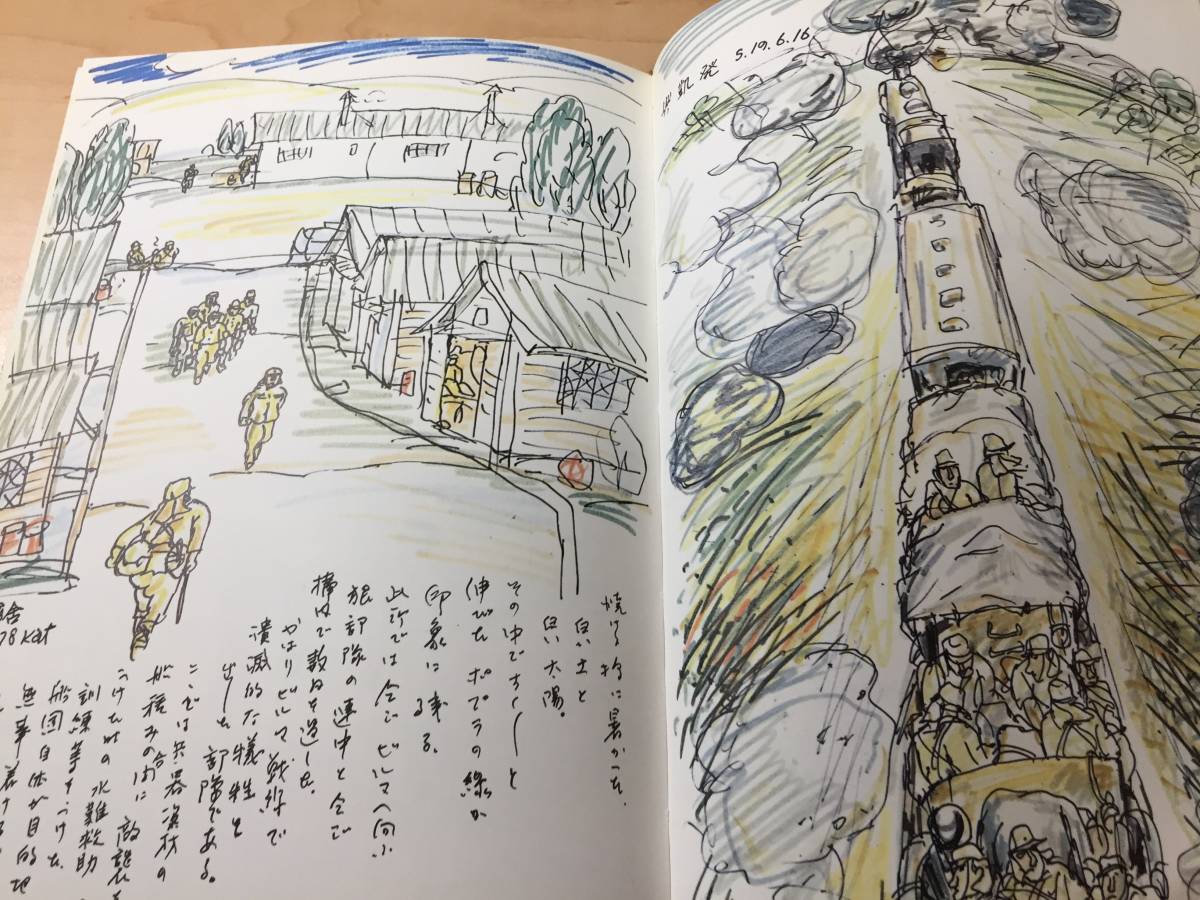 発 S.19.6.16
焼ける様に暑かった、
白い土と
白い太陽。
その中ですーーっと
伸びたポプラの緑が
印象に残る。
此所では仝じビルマへ向ふ
狼部隊の連中と仝じ
棟で数を過した。
やはりビルマ戦線で
潰滅的な犠牲を
出した部隊である。
ここでは兵器資材の
船積みの合間に 敵襲を
うけた時の水難救助
訓練等もうけた。
船団自体が目的地
無事着ける
舎
78 Kat